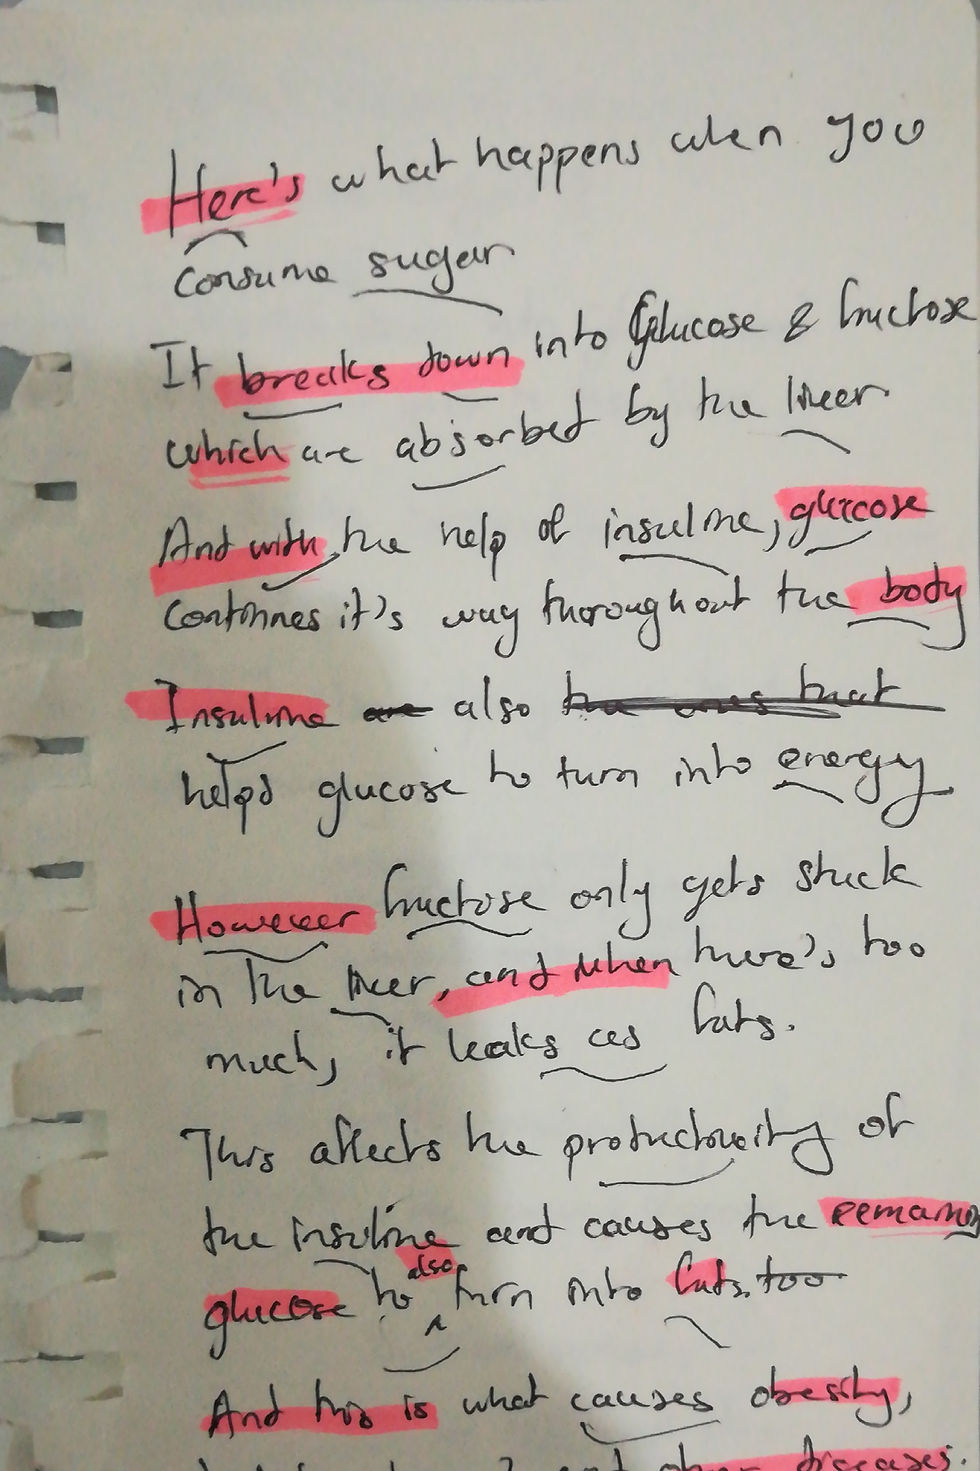 Here's what happens when you
consume sugar
It breaks down into Glucose & fructose
which are absorbed by the liver
And with the help of insuline, glucose
continues it's way thoroughout the body
Insuline are also the ones that
helps glucose to turn into energy
However fructose only gets stuck
in the liver, and when there's too
much, it leaks as fats.
This affects the productivity of
the insuline and causes the remaining
glucose to also turn into fats. too
And this is what causes obesity,
2 and other diseases.